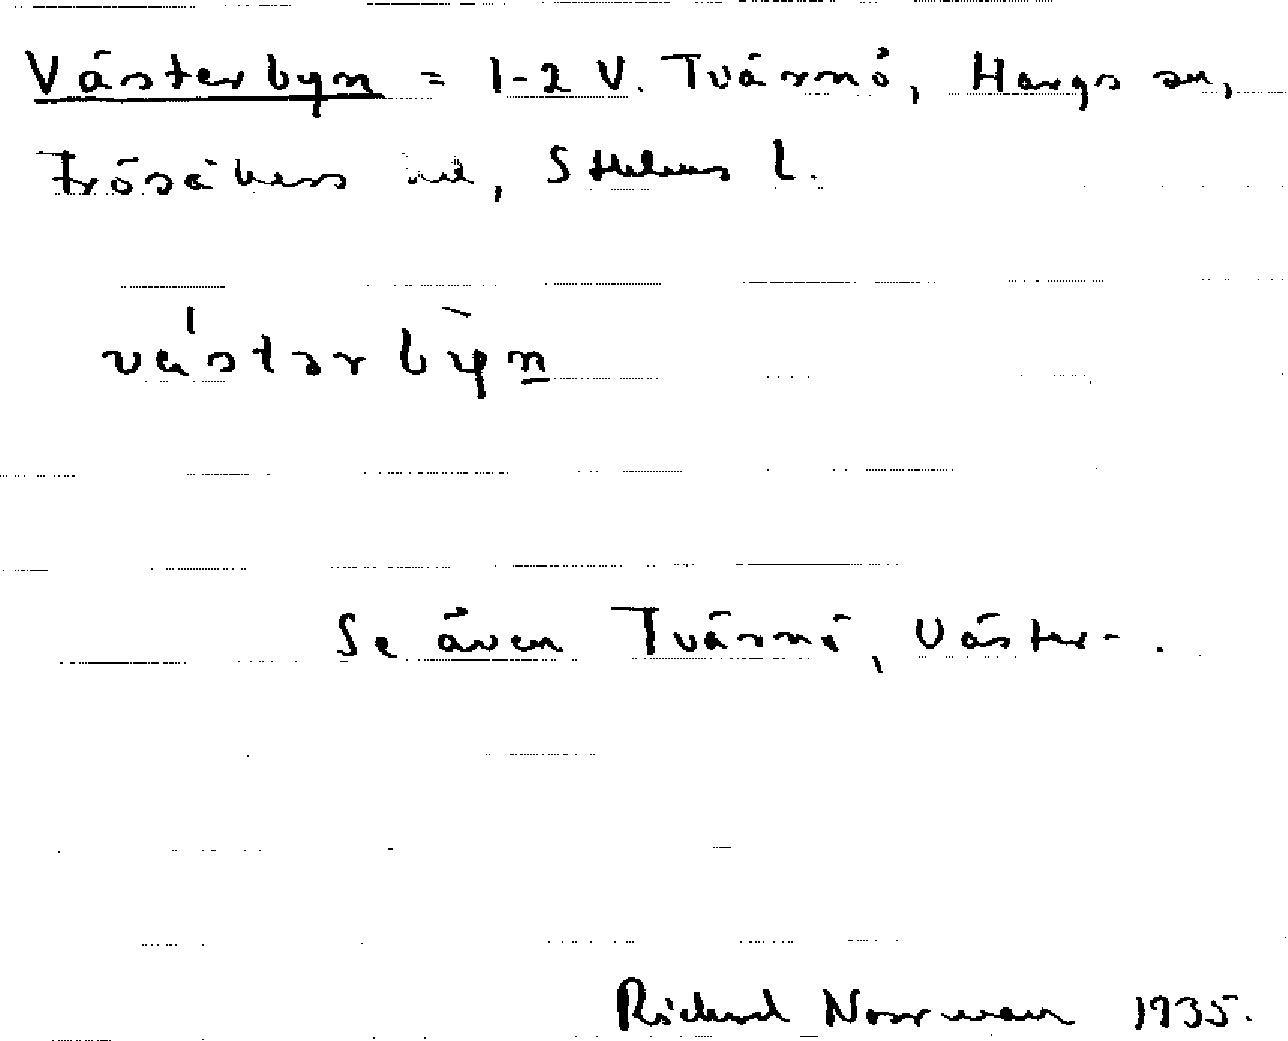 Västerbyn = 1-2 V. Tvärnö, Hargs sn,
Frösåkers hd, Sthlms l.
västərbyn
Se även Tvärnö, Väster-.
Richard Norrman 1935.